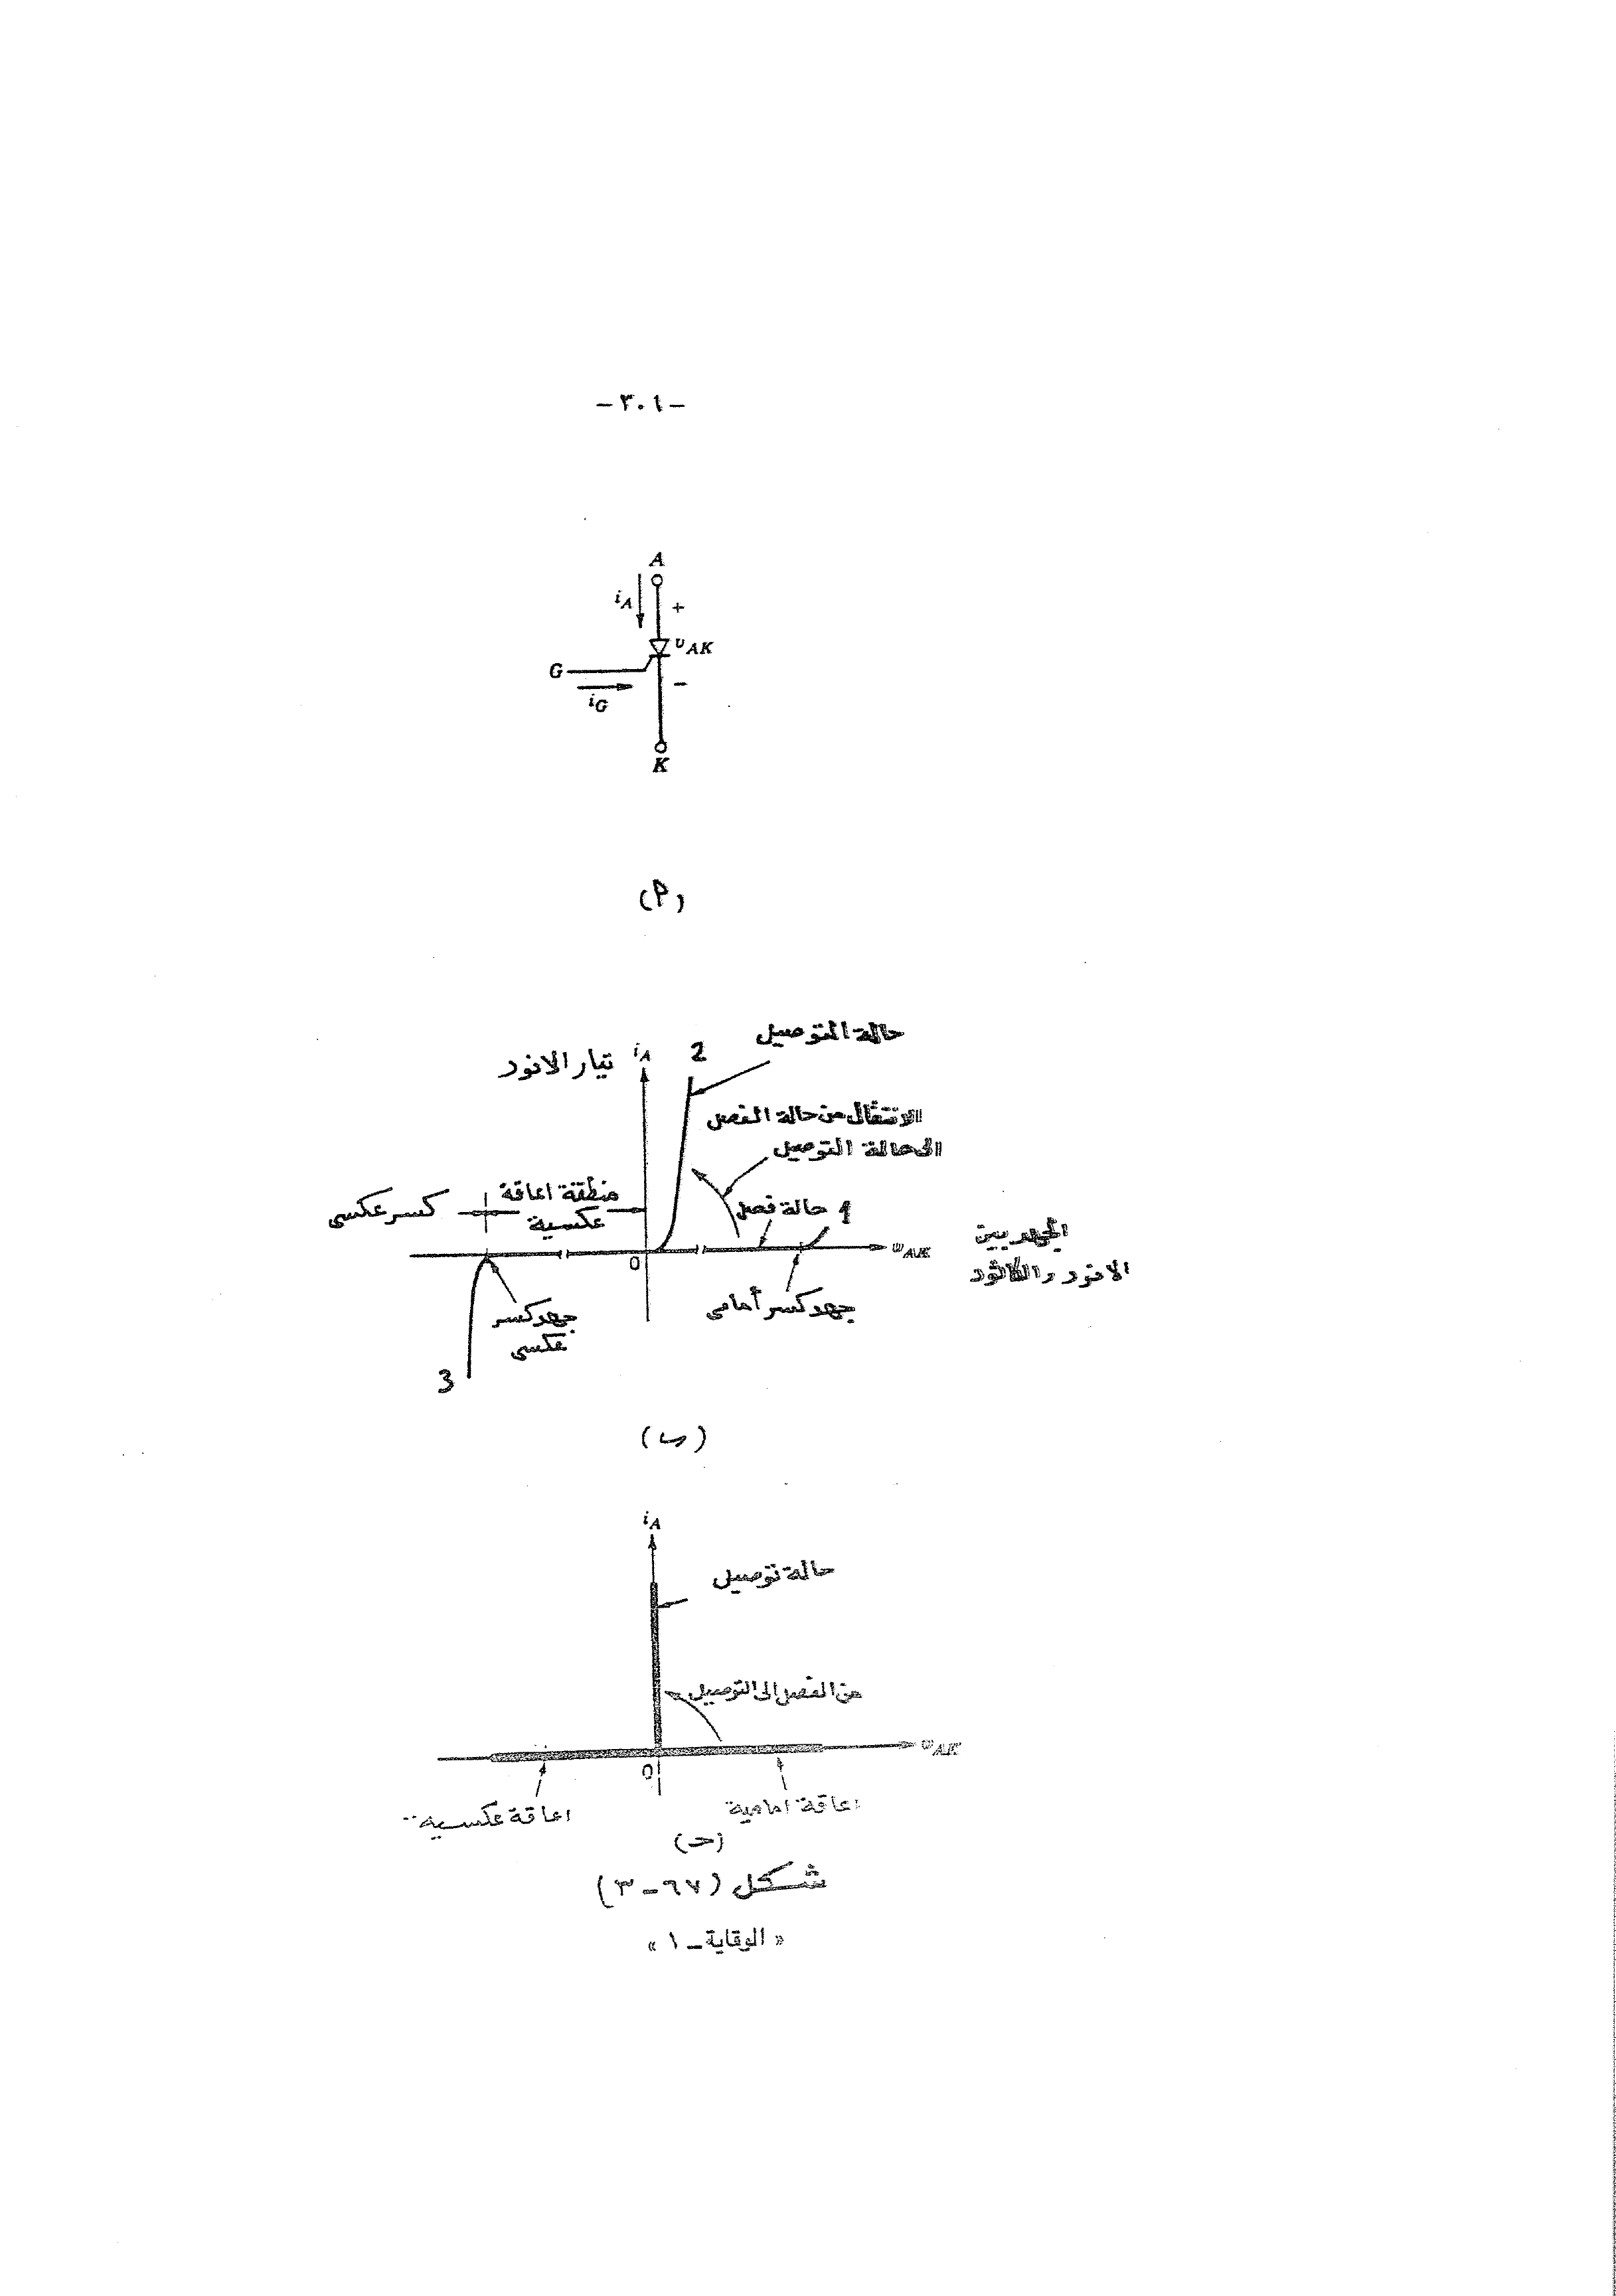 -٣٠١-
A
iA
+
υAK
G
-
iG
K
(أ)
حالة التوصيل
تيار الانود iA 2
الانتقال من حالة الفصل
الى حالة التوصيل
منطقة اعاقة
عكسية
كسر عكسى
حالة فصل 1
υAK
الجهد بين
الانود والكاثود
0
جهد كسر أمامى
جهد كسر
عكسى
3
(ب)
iA
حالة توصيل
من الفصل الى التوصيل
υAK
0
اعاقة امامية
اعاقة عكسية
(حـ)
شكل (٦٧-٣)
« الوقاية - ١ »